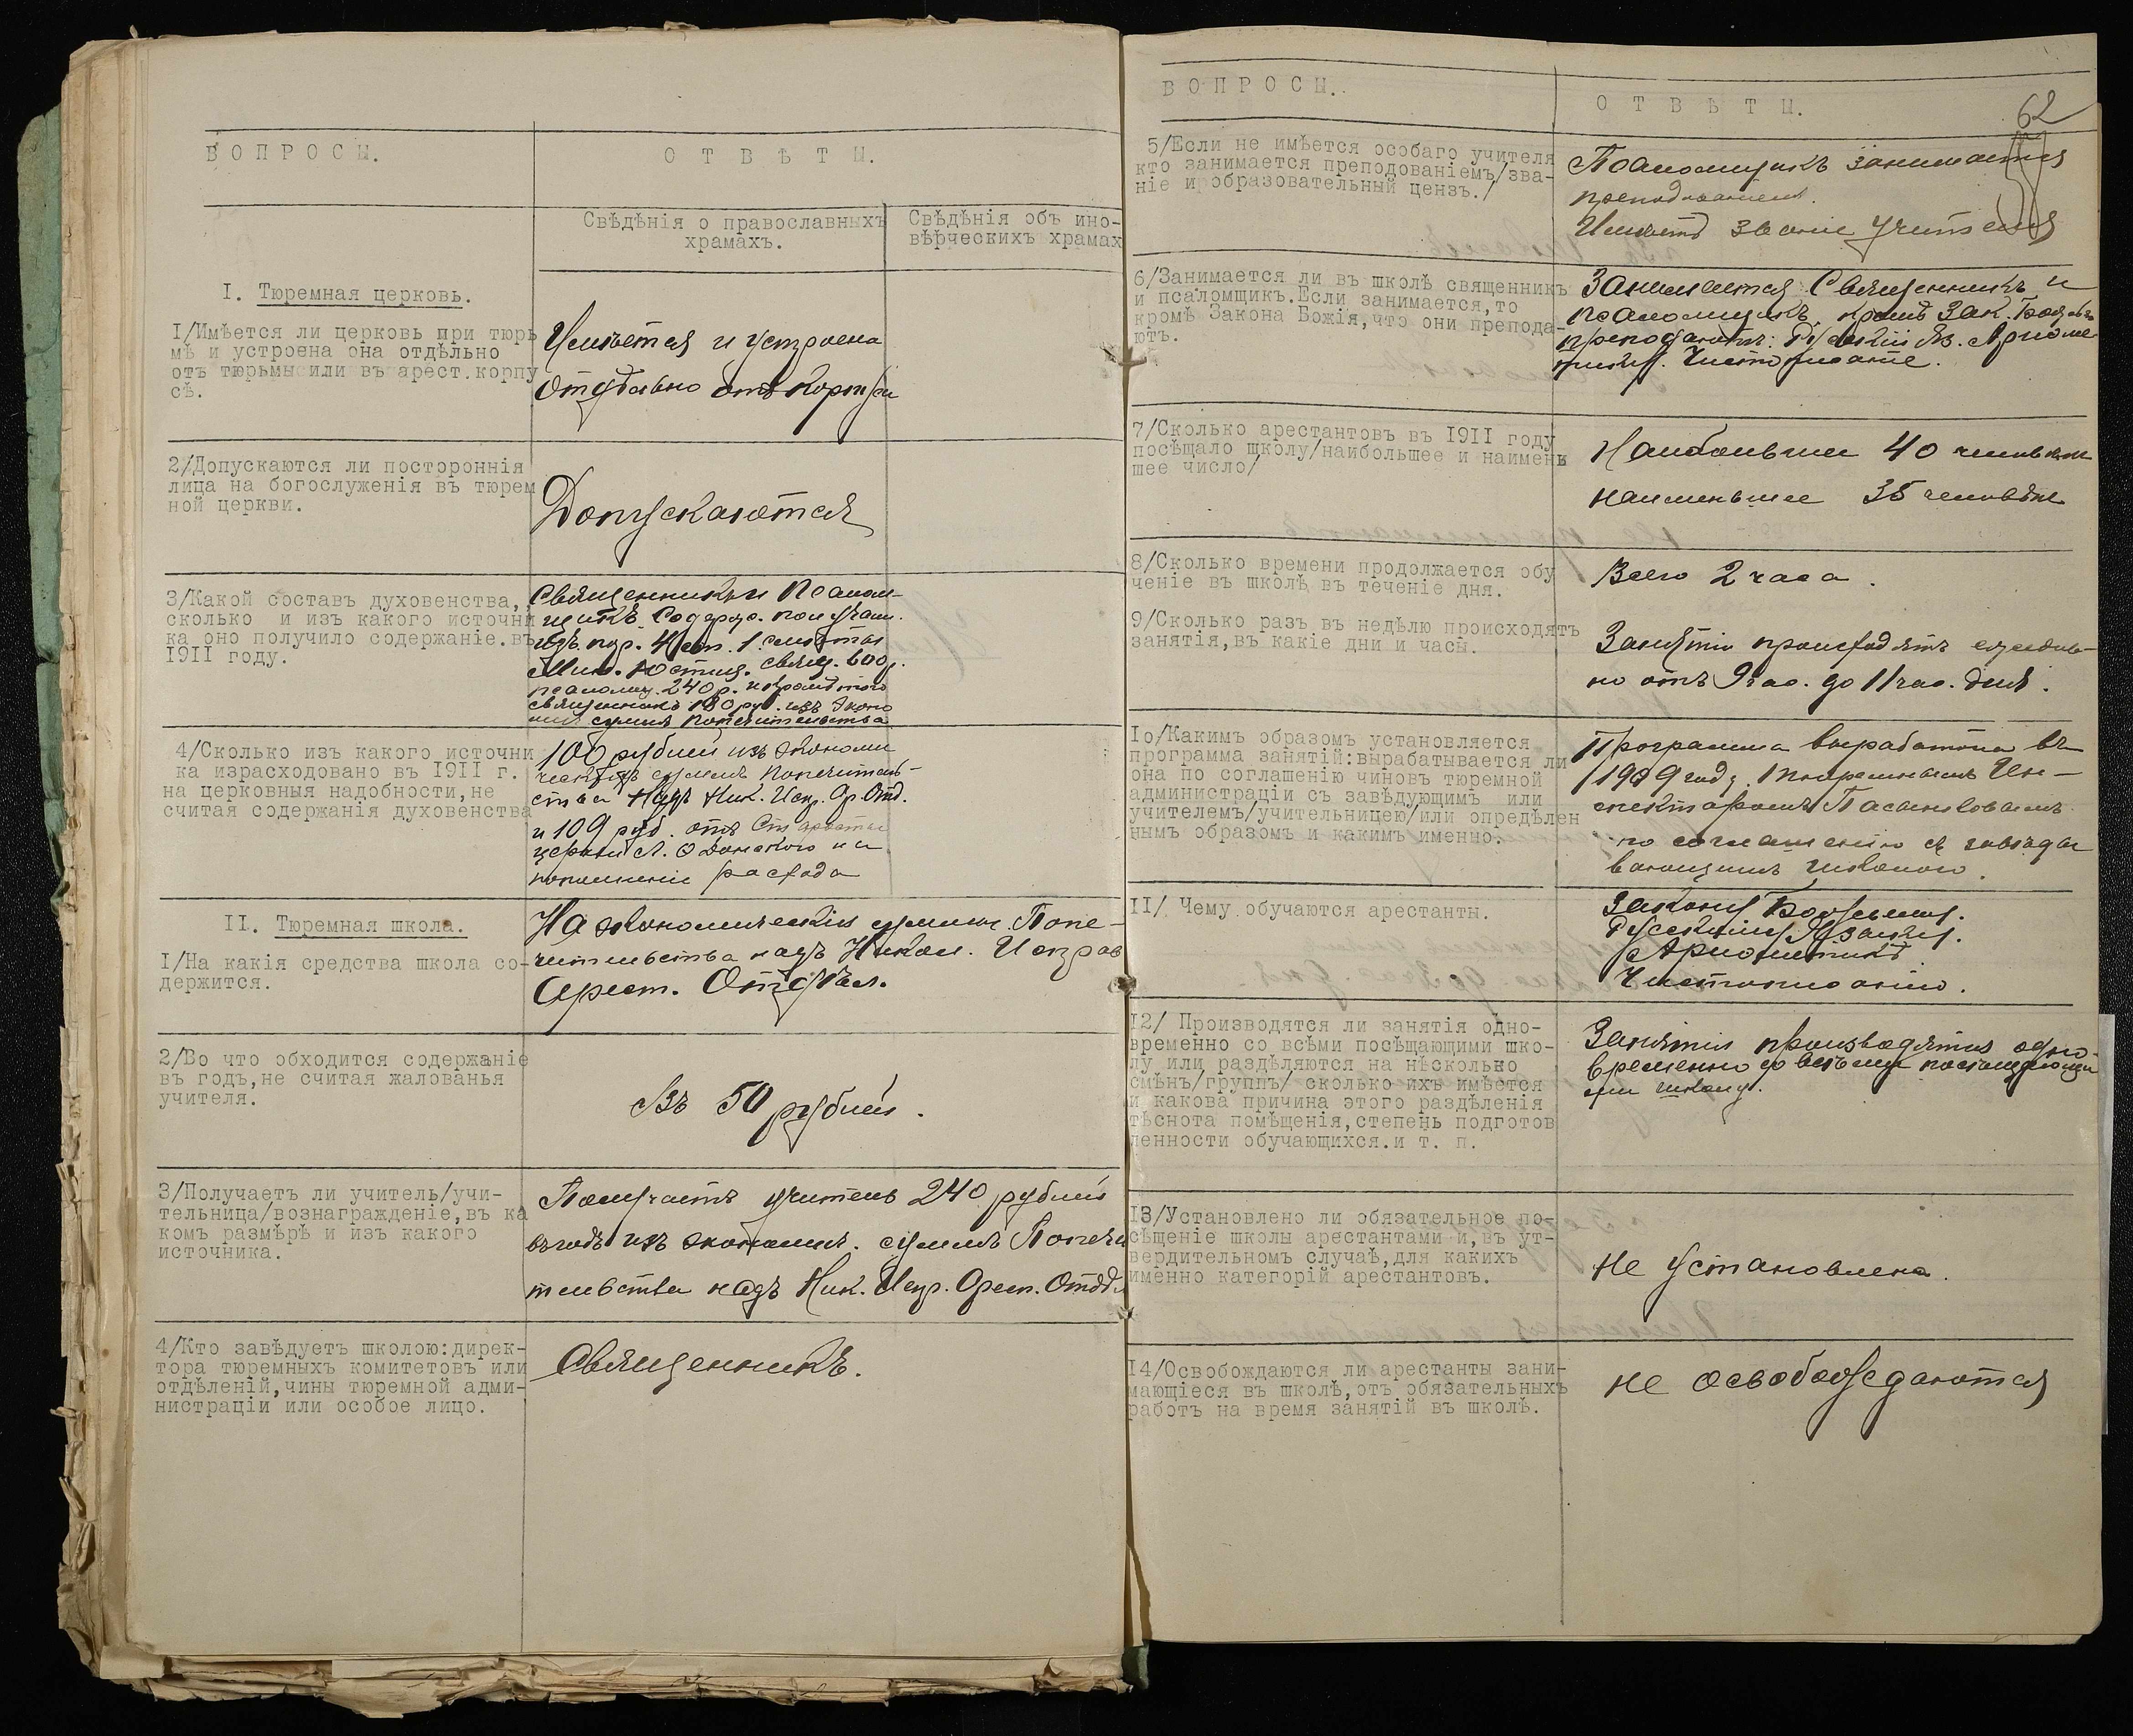 ВОПРОСЫ.
ОТВѢТЫ.
Свѣдѣнія о православныхъ
храмахъ.
Свѣдѣнія объ ино-
вѣрческихъ храмах
I. Тюремная церковь.
I/Имѣется ли церковь при тюрь
мѣ и устроена она отдѣльно
отъ тюрьмы или въ арест.корпу
сѣ.
Имѣется и устроена
отдѣльно отъ
2/Допускаются ли постороннія
лица на богослуженія въ тюрем
ной церкви.
Допускаются
3/Какой составъ духовенства,
сколько и изъ какого источни
ка оно получило содержаніе.въ
I9II году.
Священникъ и Псалом-
щикъ. Содерж. получ.
изъ пар. 4 ст. 1 смѣты
Мин. Юстиц. Свящ. 600 р.
псаломщ. 240 р. и кромѣ того
священникъ 180 руб. изъ Эконо
мич суммъ попечительства
4/Сколько изъ какого источни
ка израсходовано въ I9II г.
на церковныя надобности,не
считая содержанія духовенства
100 рублей изъ экономи
ческихъ суммъ попечитель-
ства надъ Ник. Испр. Ар. Отд.
и 109 руб. отъ Старосты
церкви на
пополненіе расхода
II. Тюремная школа.
I/На какія средства школа со-
держится.
На экономическія суммы Попе-
чительства надъ Никол. Исправ
Арест. Отдѣл.
2/Во что обходится содержаніе
въ годъ,не считая жалованья
учителя.
Въ 50 рублей.
3/Получаетъ ли учитель/учи-
тельница/вознагражденіе,въ ка
комъ размѣрѣ и изъ какого
источника.
Получаетъ учитель 240 рублей
въ годъ изъ экономич. суммъ Попечи
тельства надъ Ник. Испр. Арест. Отдѣл
4/Кто завѣдуетъ школою:дирек-
тора тюремныхъ комитетовъ или
отдѣленій,чины тюремной адми-
нистраціи или особое лицо.
Священникъ.
ВОПРОСЫ.
ОТВѢТЫ.
62
5/Если не имѣется особаго учителя
кто занимается преподованіемъ/зва-
ніе и образовательный цензъ./
Псаломщикъ занимается
преподованіем.
Имѣетъ званіе учителя
6/Занимается ли въ школѣ священникъ
и псаломщикъ.Если занимается,то
кромѣ Закона Божія,что они препода-
ютъ.
Занимается Священникъ и
псаломщикъ, кромѣ Зак. Божія
преподаютъ: Русскій яз. Ариѳме
тику. Чистописаніе.
7/Сколько арестантовъ въ I9II году
посѣщало школу/наибольшее и наимень
шее число/
Наибольшее 40 человѣкъ
наименьшее 35 человѣкъ
8/Сколько времени продолжается обу
ченіе въ школѣ въ теченіе дня.
Всего 2 часа.
9/Сколько разъ въ недѣлю происходятъ
занятія,въ какіе дни и часы.
Занятія происходятъ ежеднев-
но отъ 9 час. до 11 час. дня.
Iо/Какимъ образомъ установляется
программа занятій:вырабатывается ли
она по соглашенію чиновъ тюремной
администраціи съ завѣдующимъ или
учителемъ/учительницею/или опредѣлен
нымъ образомъ и какимъ именно.
Программа выработана въ
1909 году, Тюремнымъ Ин-
спекторомъ
по соглашенію съ завѣды
вающимъ школою.
II/ Чему обучаются арестанты.
Закону Божьему.
Русскому Языку.
Ариѳметикѣ
Чистописанію.
I2/ Производятся ли занятія одно-
временно со всѣми посѣщающими шко-
лу или раздѣляются на нѣсколько
смѣнъ/группъ/ сколько ихъ имѣется
и какова причина этого раздѣленія
тѣснота помѣщенія,степень подготов
ленности обучающихся.и т. п.
Занятія производятся одно-
временно со всѣми посѣщающи
ми школу.
I3/Установлено ли обязательное по-
сѣщеніе школы арестантами и,въ ут-
вердительномъ случаѣ,для какихъ
именно категорій арестантовъ.
Не установлено.
I4/Освобождаются ли арестанты зани-
мающіеся въ школѣ,отъ обязательныхъ
работъ на время занятій въ школѣ.
не освобождаются